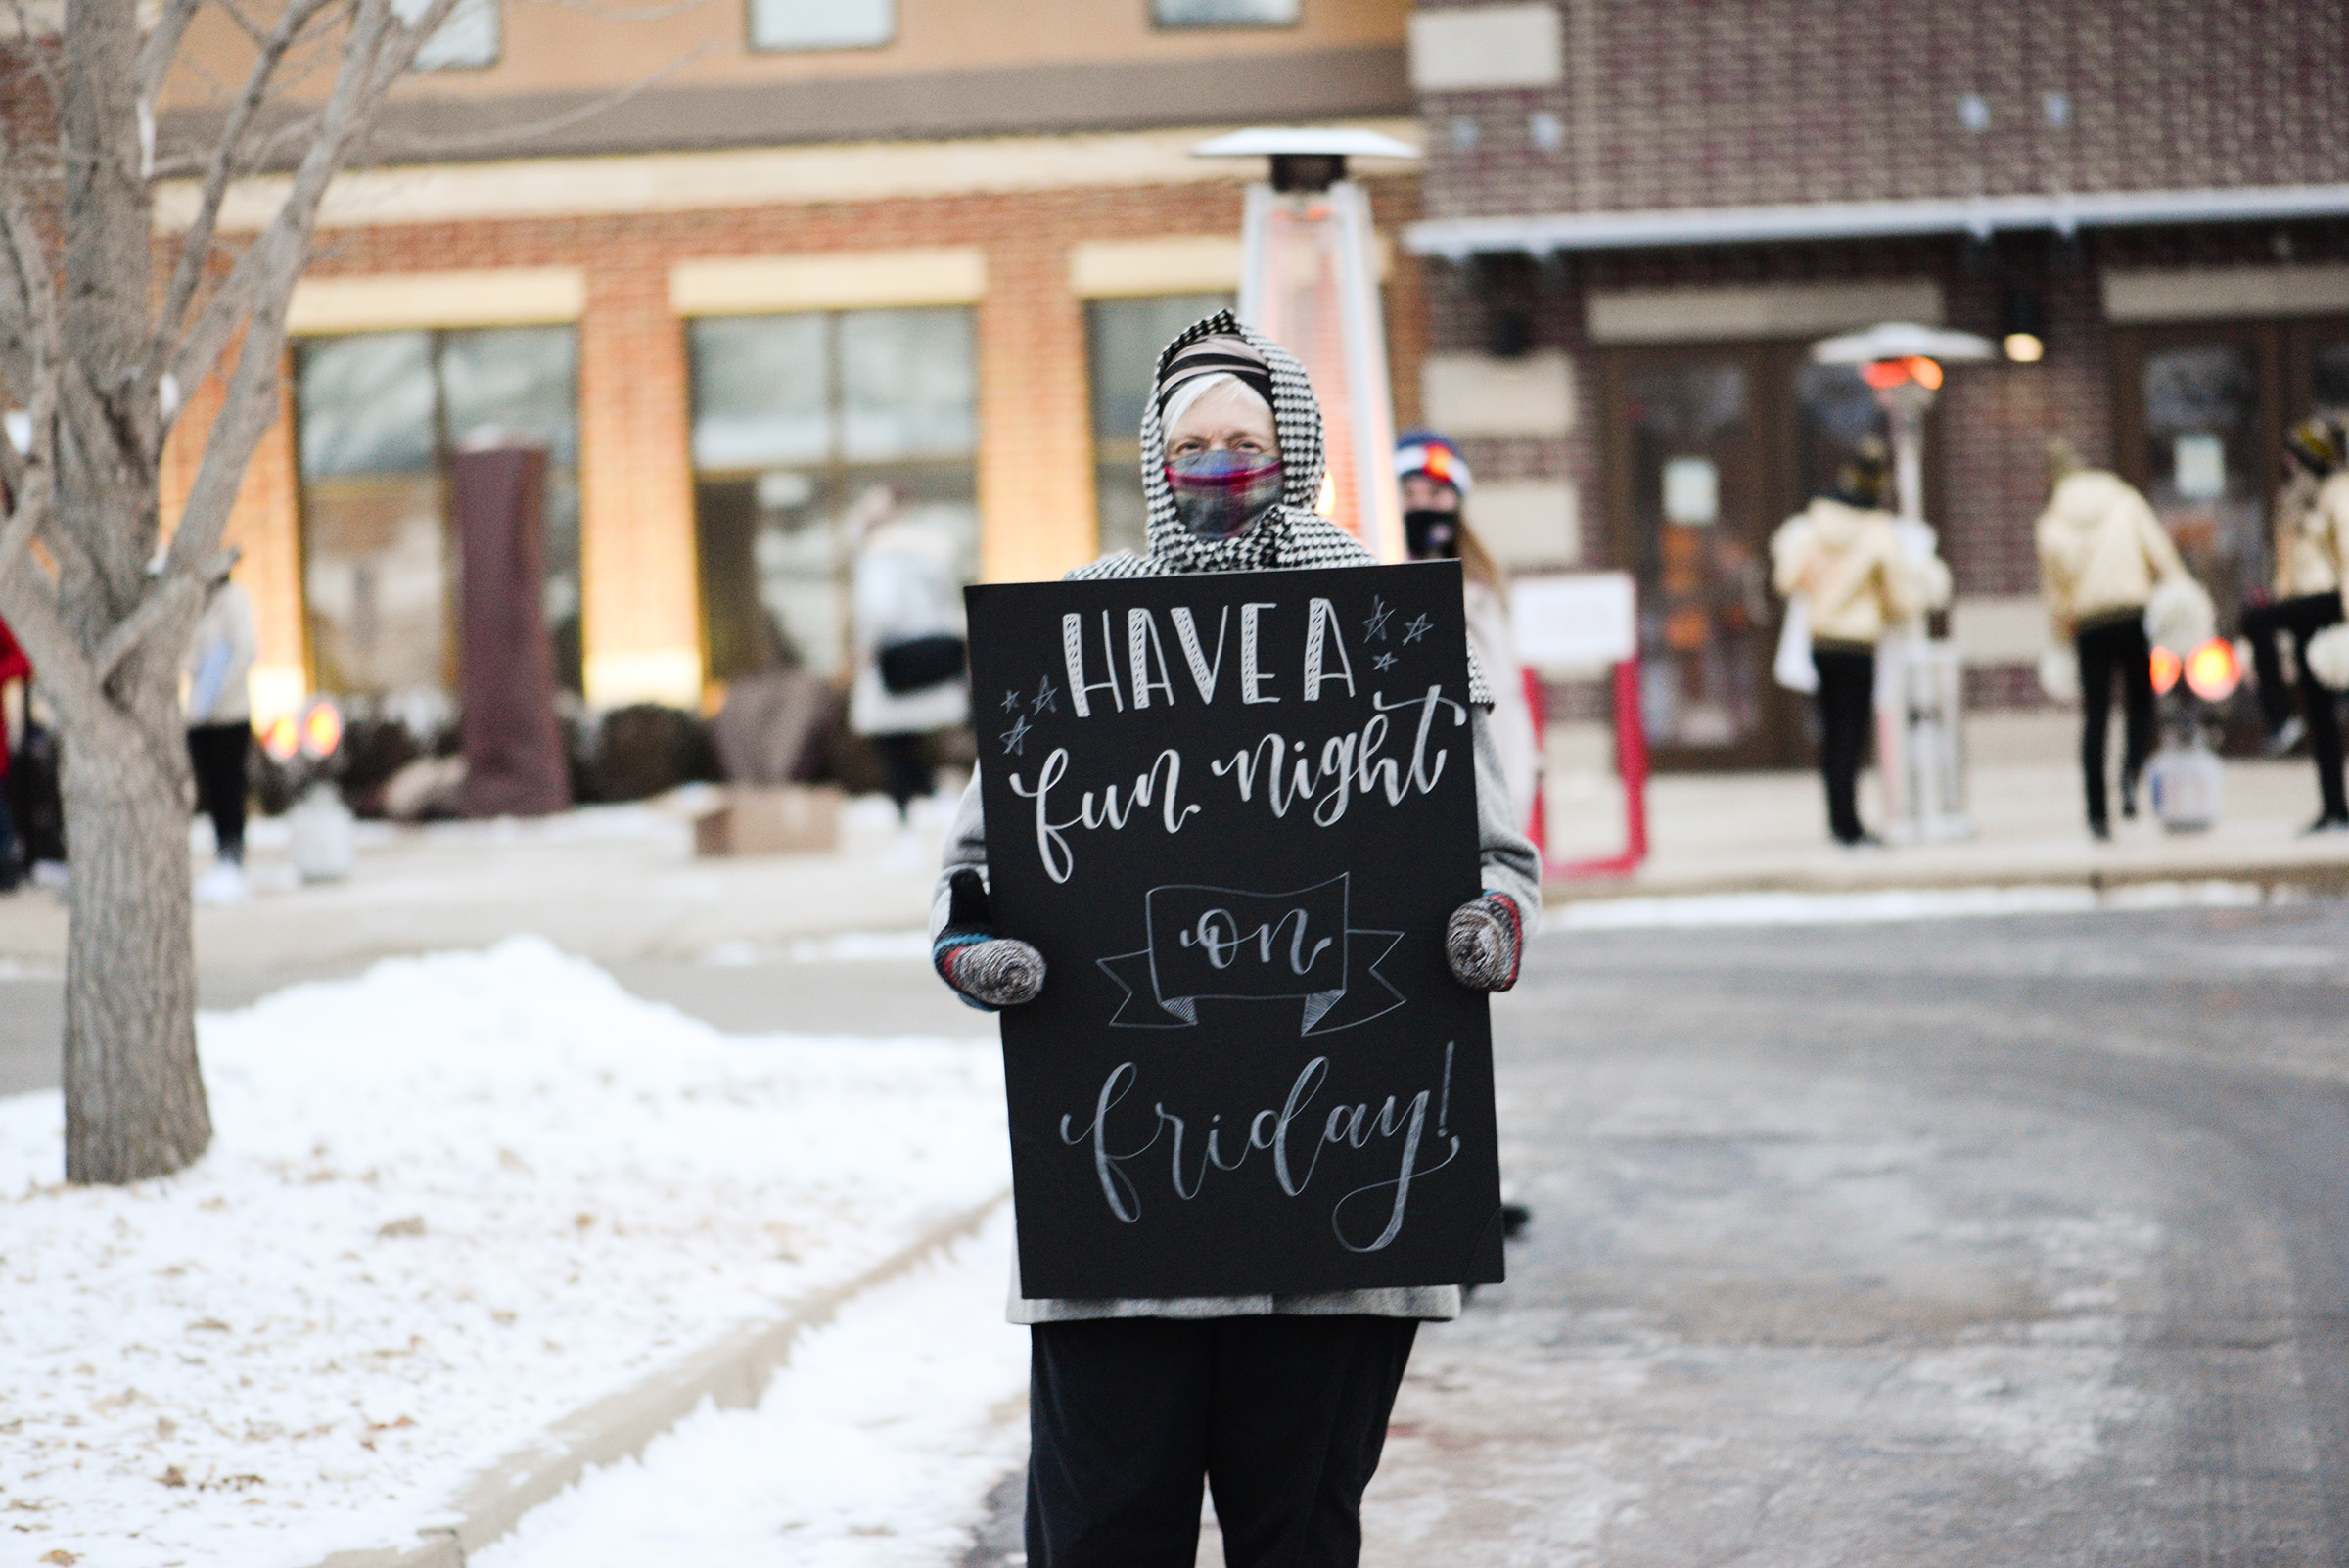 HAVE A
fun night
on
friday!